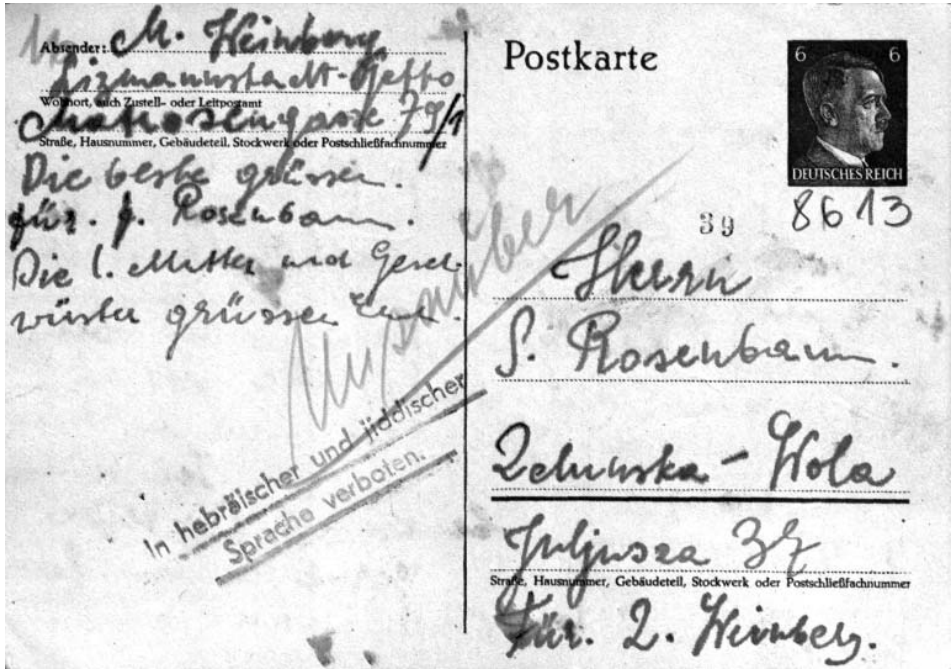 Absender: M. Weinberg
Lizmannstadt-Getto
Wohnort, auch Zustell- oder Leitpostamt
Matrosengasse 79/1
Straße, Hausnummer, Gebäudeteil, Stockwerk oder Postschließfachnummer
Die beste grüssen.
für. J. Rosenbaum.
Die l. Mutter und Gesch-
wister grüssen
Unsauber
In hebräischer und jiddischer
Sprache verboten.
Postkarte
6 6
DEUTSCHES REICH
39 8613
Herrn
S. Rosenbaum.
Zdunska - Wola
Juljusza
Straße, Hausnummer, Gebäudeteil, Stockwerk oder Postschließfachnummer
Für. L. Weinberg.